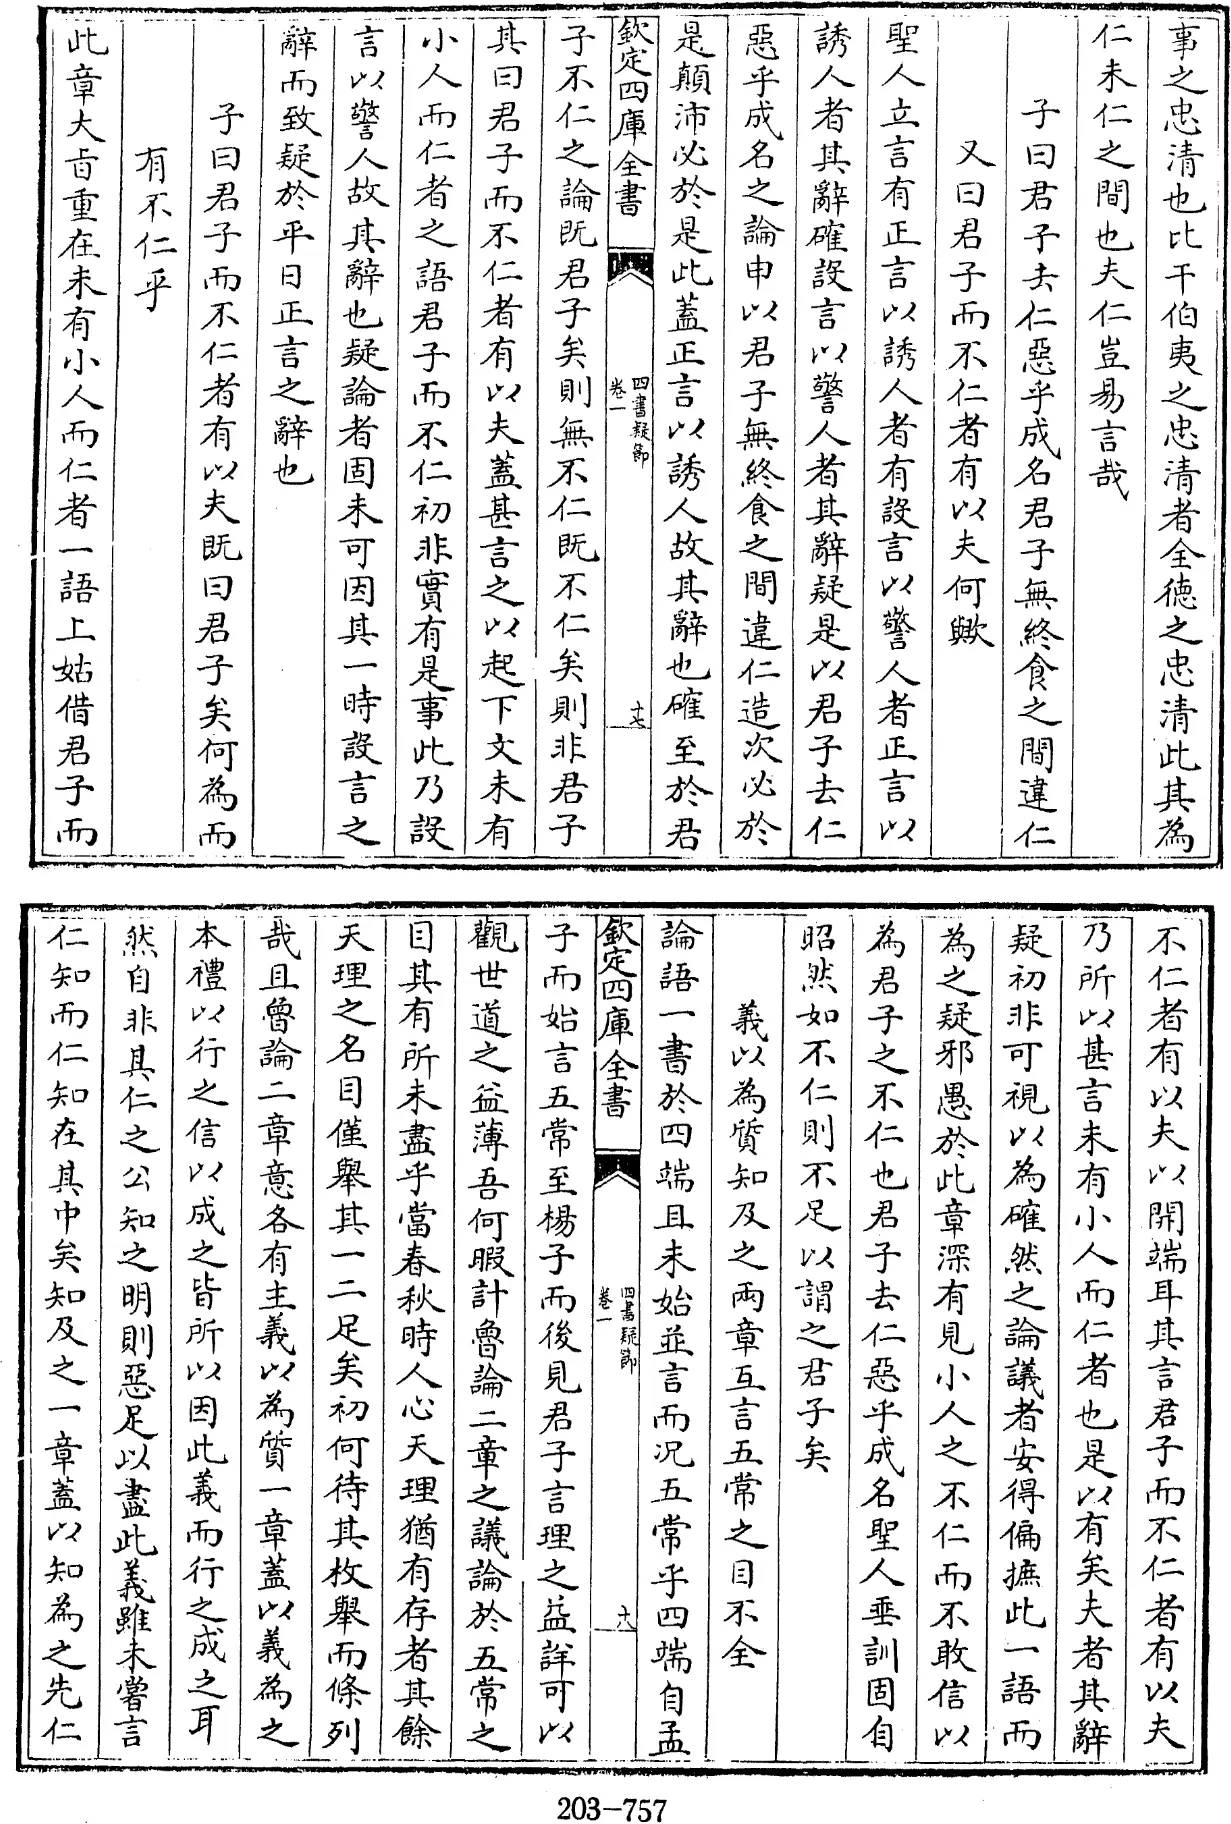 事之忠清也比干伯夷之忠清者全德之忠清此其為
仁未仁之間也夫仁豈易言哉
子曰君子去仁惡乎成名君子無終食之間違仁
又曰君子而不仁者有以夫何歟
聖人立言有正言以誘人者有設言以警人者正言以
誘人者其辭確設言以警人者其辭疑是以君子去仁
惡乎成名之論申以君子無終食之間違仁造次必於
是顛沛必於是此蓋正言以誘人故其辭也確至於君
欽定四庫全書
四書疑節
卷一
十七
子不仁之論既君子矣則無不仁既不仁矣則非君子
其曰君子而不仁者有以夫蓋甚言之以起下文未有
小人而仁者之語君子而不仁初非實有是事此乃設
言以警人故其辭也疑論者固未可因其一時設言之
辭而致疑於平日正言之辭也
子曰君子而不仁者有以夫既曰君子矣何為而
有不仁乎
此章大旨重在未有小人而仁者一語上姑借君子而
不仁者有以夫以開端耳其言君子而不仁者有以夫
乃所以甚言未有小人而仁者也是以有矣夫者其辭
疑初非可視以為確然之論議者安得偏摭此一語而
為之疑邪愚於此章深有見小人之不仁而不敢信以
為君子之不仁也君子去仁惡乎成名聖人垂訓固自
昭然如不仁則不足以謂之君子矣
義以為質知及之兩章互言五常之目不全
論語一書於四端且未始並言而况五常乎四端自孟
欽定四庫全書
四書疑節
卷一
十八
子而始言五常至楊子而後見君子言理之益詳可以
觀世道之益薄吾何暇計魯論二章之議論於五常之
目其有所未盡乎當春秋時人心天理猶有存者其餘
天理之名目僅舉其一二足矣初何待其枚舉而條列
哉且魯論二章意各有主義以為質一章蓋以義為之
本禮以行之信以成之皆所以因此義而行之成之耳
然自非具仁之公知之明則惡足以盡此義雖未嘗言
仁知而仁知在其中矣知及之一章蓋以知為之先仁
203-757